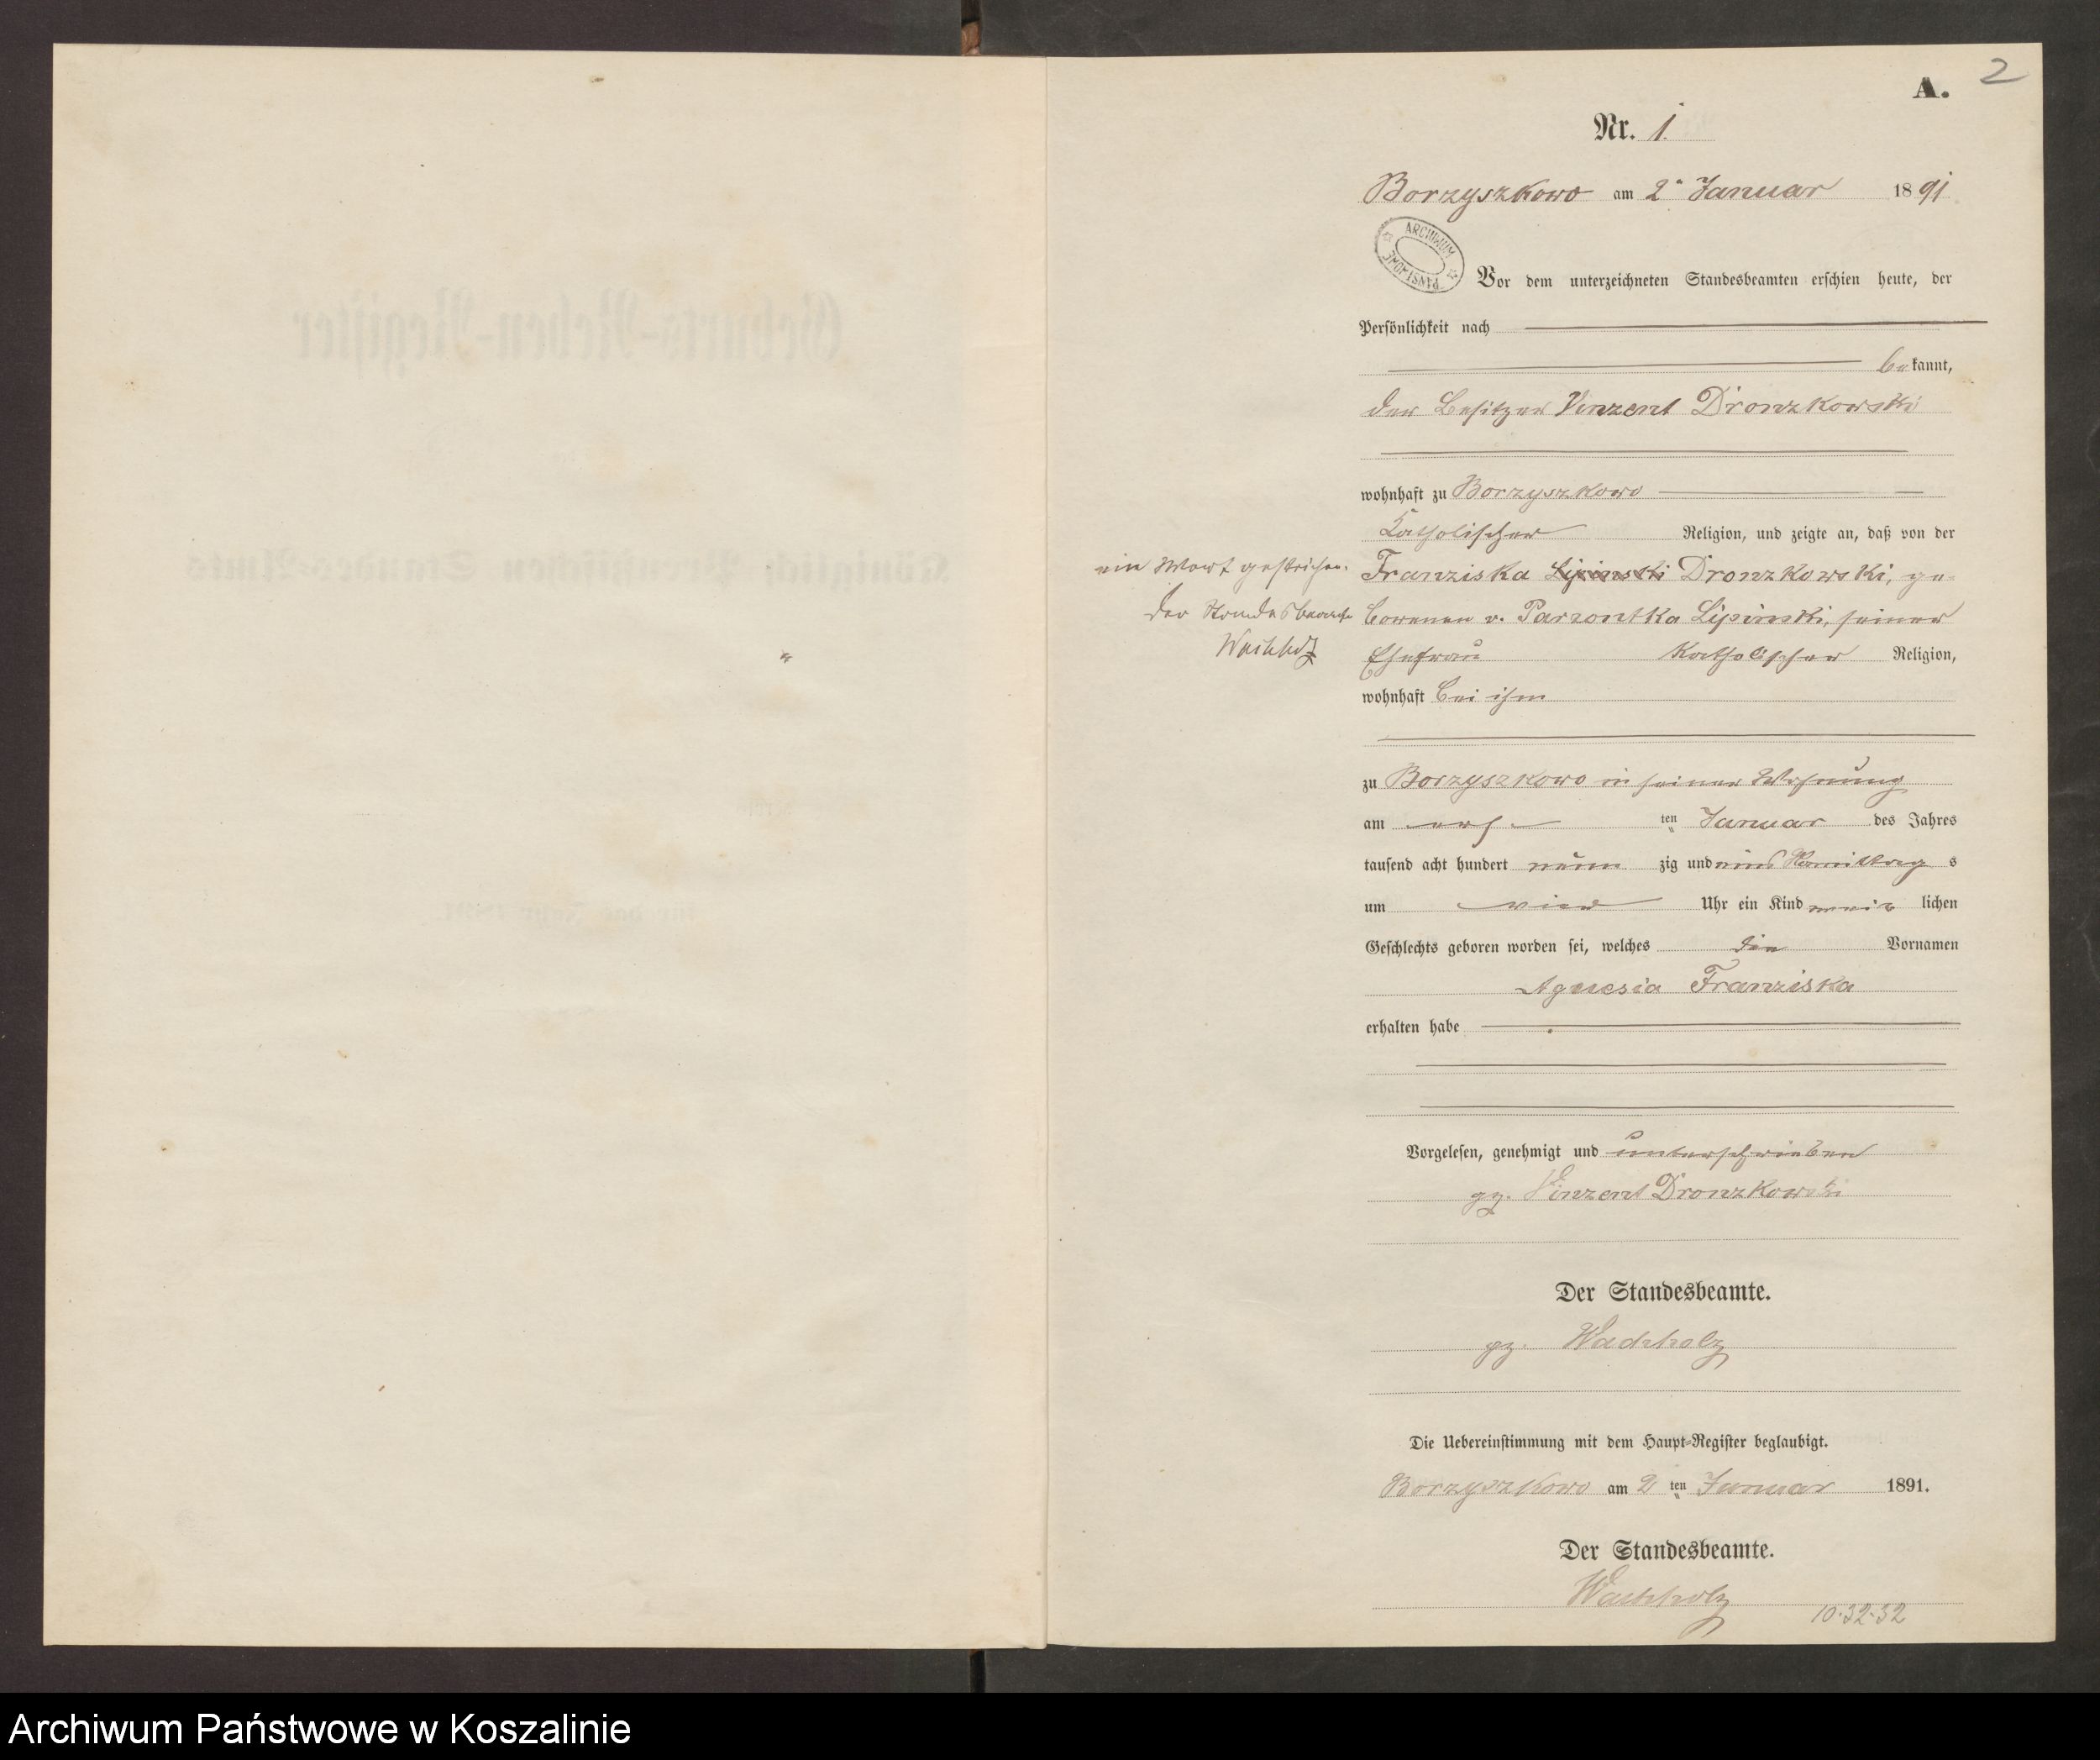 A. 2
Nr. 1.
Borzyszkowo am 2ⁿ Januar 1891
ARCHIWUM PAŃSTWOWE
Vor dem unterzeichneten Standesbeamten erschien heute, der
Persönlichkeit nach
bekannt,
der Besitzer Vinzent Dronzkowski
wohnhaft zu Borzyszkowo
Katholischer Religion, und zeigte an, daß von der
ein Wort gestrichen.
Der Standesbeamte
Wachholz
Franziska Lipinski Dronzkowski, ge-
borenen v. Parzontka Lipinski, seiner
Ehefrau Katholischer Religion,
wohnhaft bei ihm
zu Borzyszkowo in seiner Wohnung
am ers ten Januar des Jahres
tausend acht hundert neun zig und eins Vormittag s
um vier Uhr ein Kind weib lichen
Geschlechts geboren worden sei, welches die Vornamen
Agnesia Franziska
erhalten habe
Vorgelesen, genehmigt und unterschrieben
gz. Vinzent Dronzkowski
Der Standesbeamte.
gz. Wachholz
Die Uebereinstimmung mit dem Haupt-Register beglaubigt.
Borzyszkowo am 2 ten Januar 1891.
Der Standesbeamte.
Wachholz
10-32-32
Archiwum Państwowe w Koszalinie